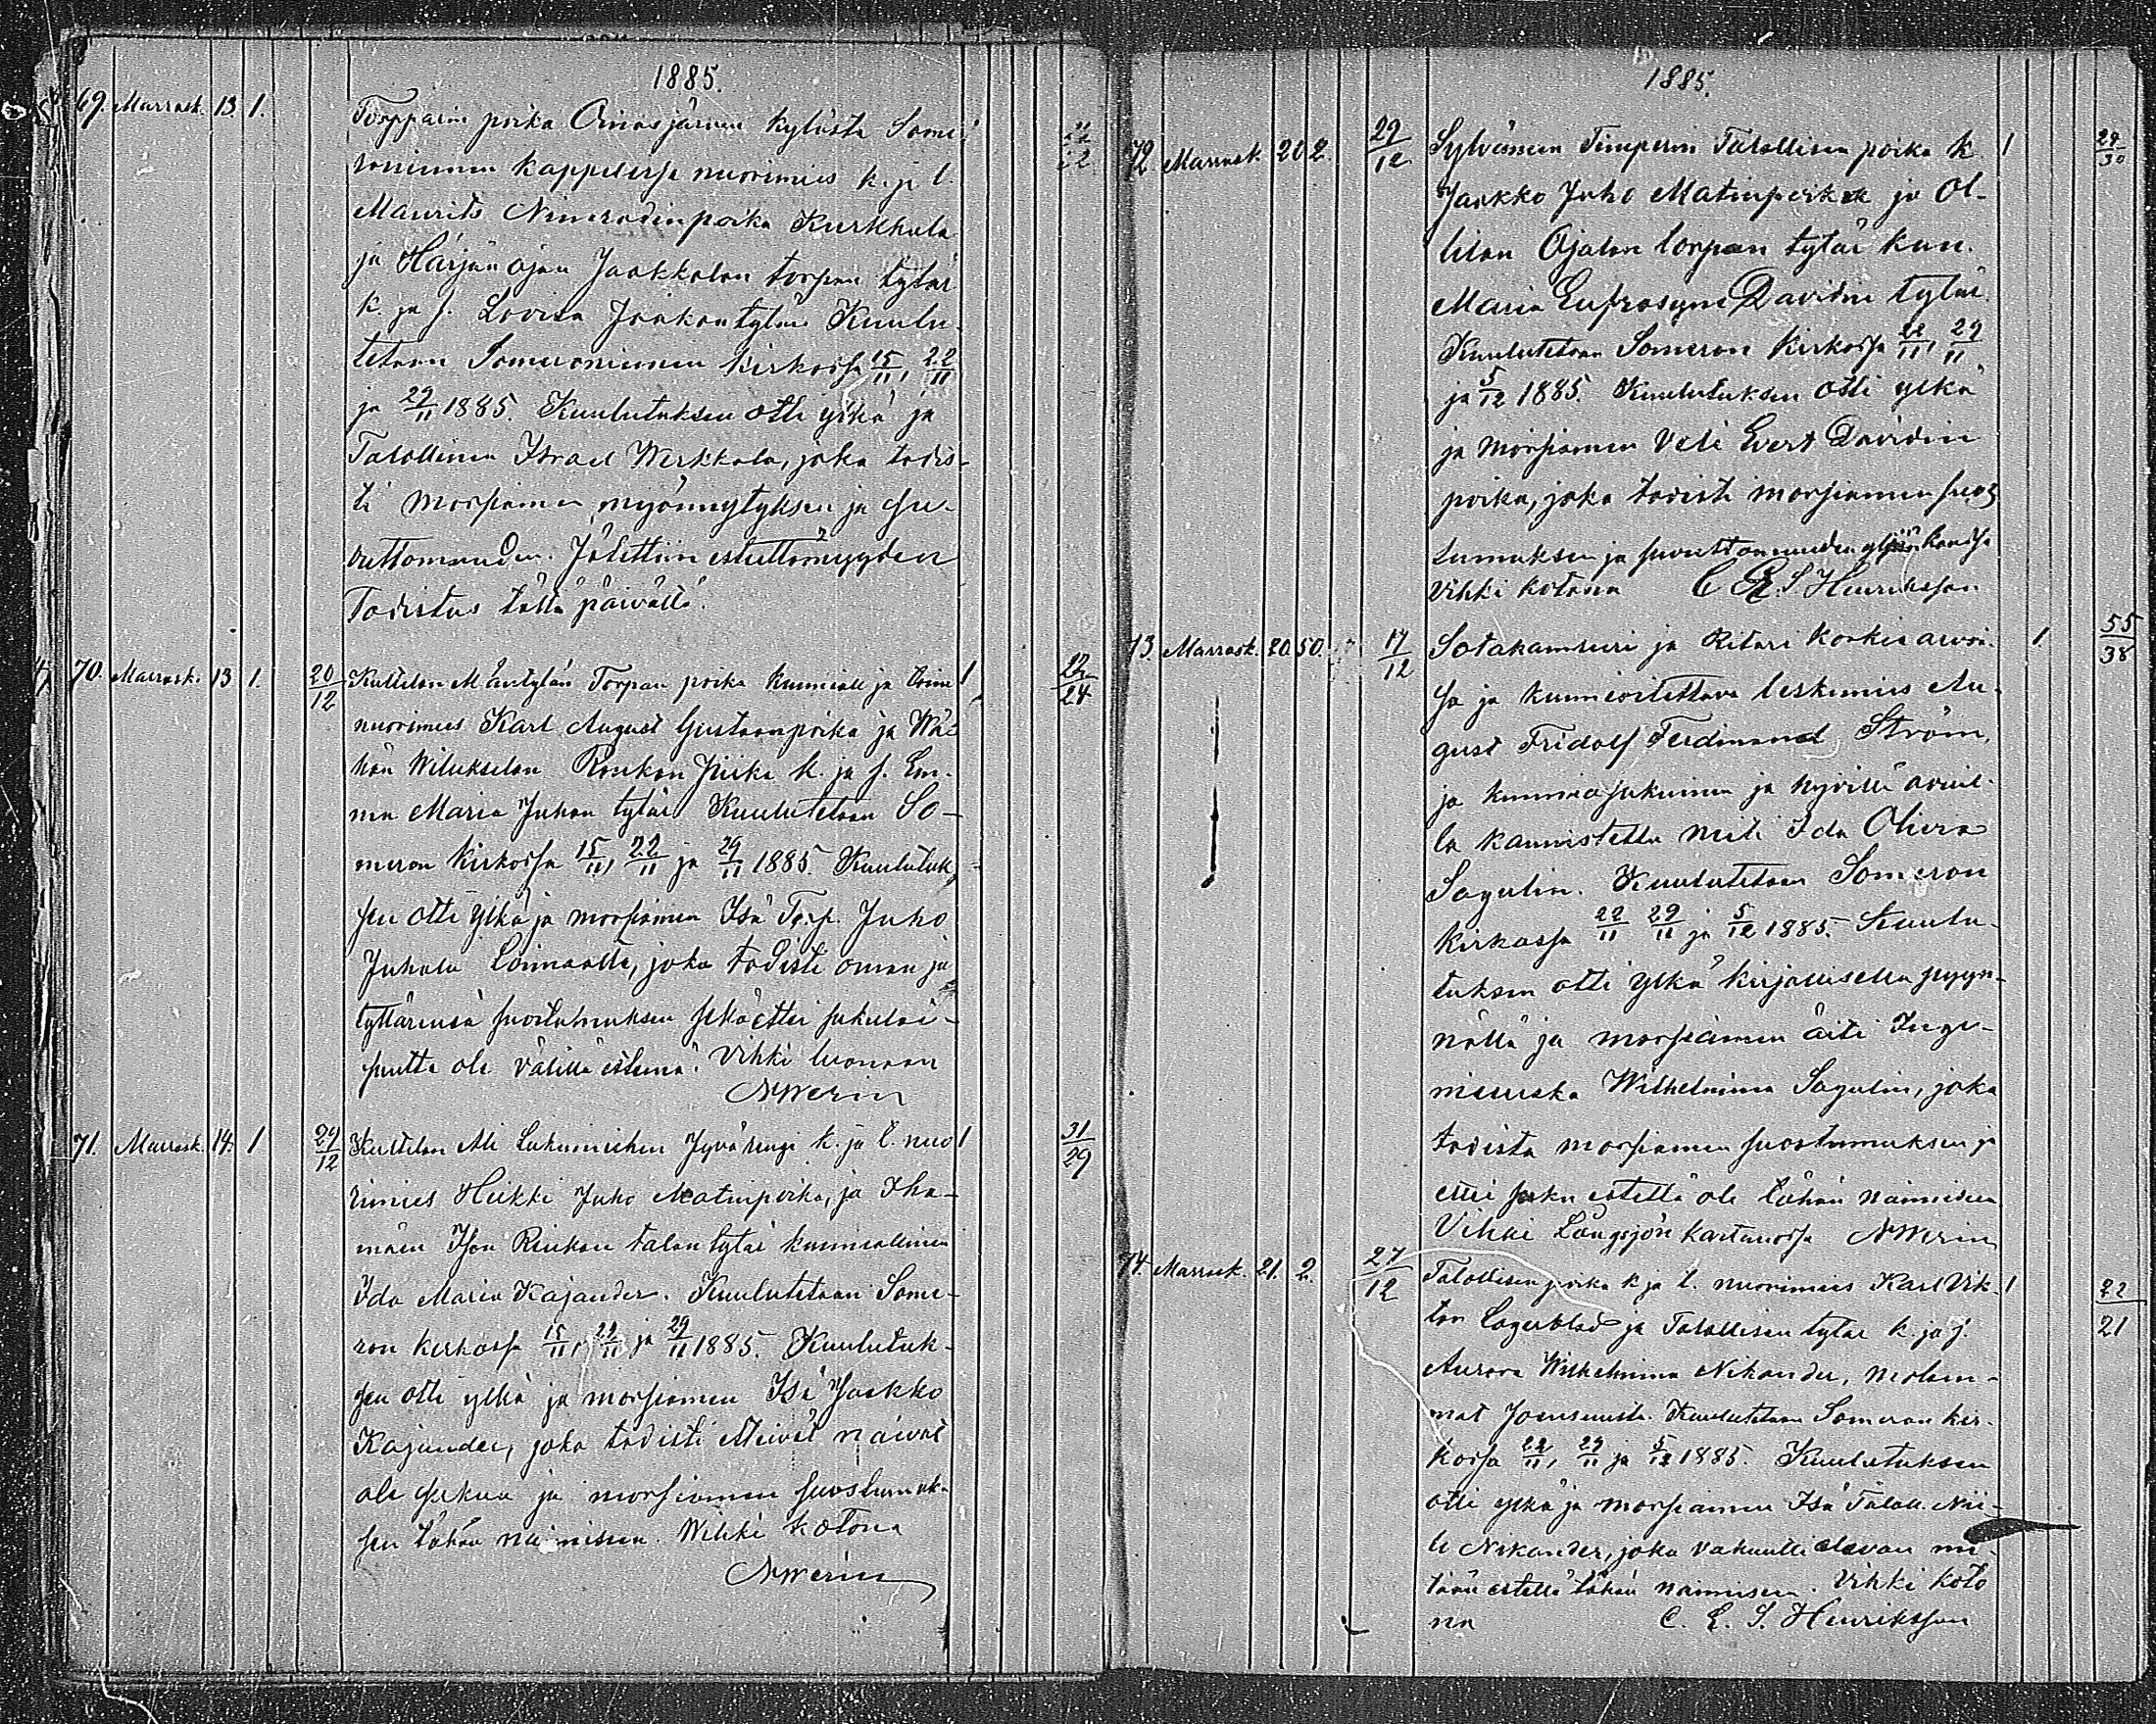 1885.
69. Marrask. 13. 1. Torpparin poika Oinasjärven kylästä Some-
ronniemen kappelissa nuorimies k. ja l.
Maurits Nimrodinpoika Kurkkula
ja Härjänojan Jaakkolan torpan tytär
k. ja s. Lovisa Jaakontytär Kuulu-
tetaan Someroniemen kirkossa 15/11, 22/11
ja 29/11 1885. Kuulutuksen otti ylkä ja
Talollinen Israel Werkkala, joka todis-
ti morsiamen myönnytyksen ja su-
vuttomuuden. Jätettiin esteettömyyden
Todistus tällä päivällä.
70. Marrask. 13 1. 20/12 Kultelan Mäntylän Torpan poika kunniall. ja 1 22/24
nuorimies Karl August Gustaanpoika ja Wä-
hän Wilukselan Roukon piika k. ja s. Em-
ma Maria Juhan tytär Kuulutetaan So-
meron kirkossa 15/11, 22/11 ja 29/11 1885. Kuulutuk-
sen otti ylkä ja morsiamen Isä Torp. Juho
Juhala Loimaalta, joka todisti oman ja
tyttärensä suostumuksen sekä ettei sukulai-
suutta ole välillä esteenä. Vihki luonaan
AWerin
71. Marrask. 14. 1 29/12 Kultelan Ali Lukumiehen Jyvärengi k. ja l. nuo 1 31/29
rimies Heikki Juho Matinpoika, ja Iha-
mäen Ison Rieikon talon tytär kunniallinen
Ida Maria Kajander. Kuulutetaan Some-
ron kirkossa 15/11, 22/11 ja 29/11 1885. Kuulutuk-
sen otti ylkä ja morsiamen Isä Jaakko
Kajander, joka todisti etteivät näivät
ole sukua ja morsiamen suostumuk-
sen tähän naimiseen. Wihki kotona
AWerin
1885.
72. Marrask 20 2. 29/12 Sylvänään Timperin Talollisen poika k. 1 29/30
Jaakko Juho Matinpoika ja Ol-
lilan Ojalan torpan tytär kun.
Maria Eufrosyne Davidin tytär.
Kuulutetaan Someron kirkossa 22/11, 29/11
ja 5/12 1885. Kuulutuksen otti ylkä
ja morsiamen veli Evert Davidin
poika, joka todisti morsiamen suos
tumuksen ja suvuttomuuden yljän kanssa
Vihki kotona C. E. S. Henriksson
73. Marrask. 20. 50. 17/12 Sotakamreeri ja Ritari korkia arvoi- 1. 55/38
sa ja kunnioitettava leskimies Au-
gust Fridolf Ferdinand Ström,
ja kunniasukuinen ja hyvillä avuil-
la kaunistettu neiti Ida Olivia
Sagulin. Kuulutetaan Someron
kirkossa 22/11 29/11 ja 5/12 1885. Kuulu-
tuksen otti ylkä kirjallisella pyyn-
nöllä ja morsiamen äiti Inge-
niewska Wilhelmina Sagulin, joka
todista morsiamen suostumuksen ja
ettei suku estettä ole tähän naimiseen
Vihki Långsjön kartanossa AWerin
74. Marrask. 21. 2. 27/12 Talollisen poika k ja l. nuorimies Karl Vik- 1 22/21
tor Lagerblad ja Talollisen tytär k. ja s.
Aurora Wilhelmina Nikander, molem-
mat Joensuusta. Kuulutetaan Someron kir-
kossa 22/11, 29/11 ja 5/12 1885. Kuulutuksen
otti ylkä ja morsiamen Isä Taloll. Nii-
lo Nikander, joka vakuutti olevan mi-
tään estettä tähän naimiseen. Vihki koto
na C. E. S. Henriksson